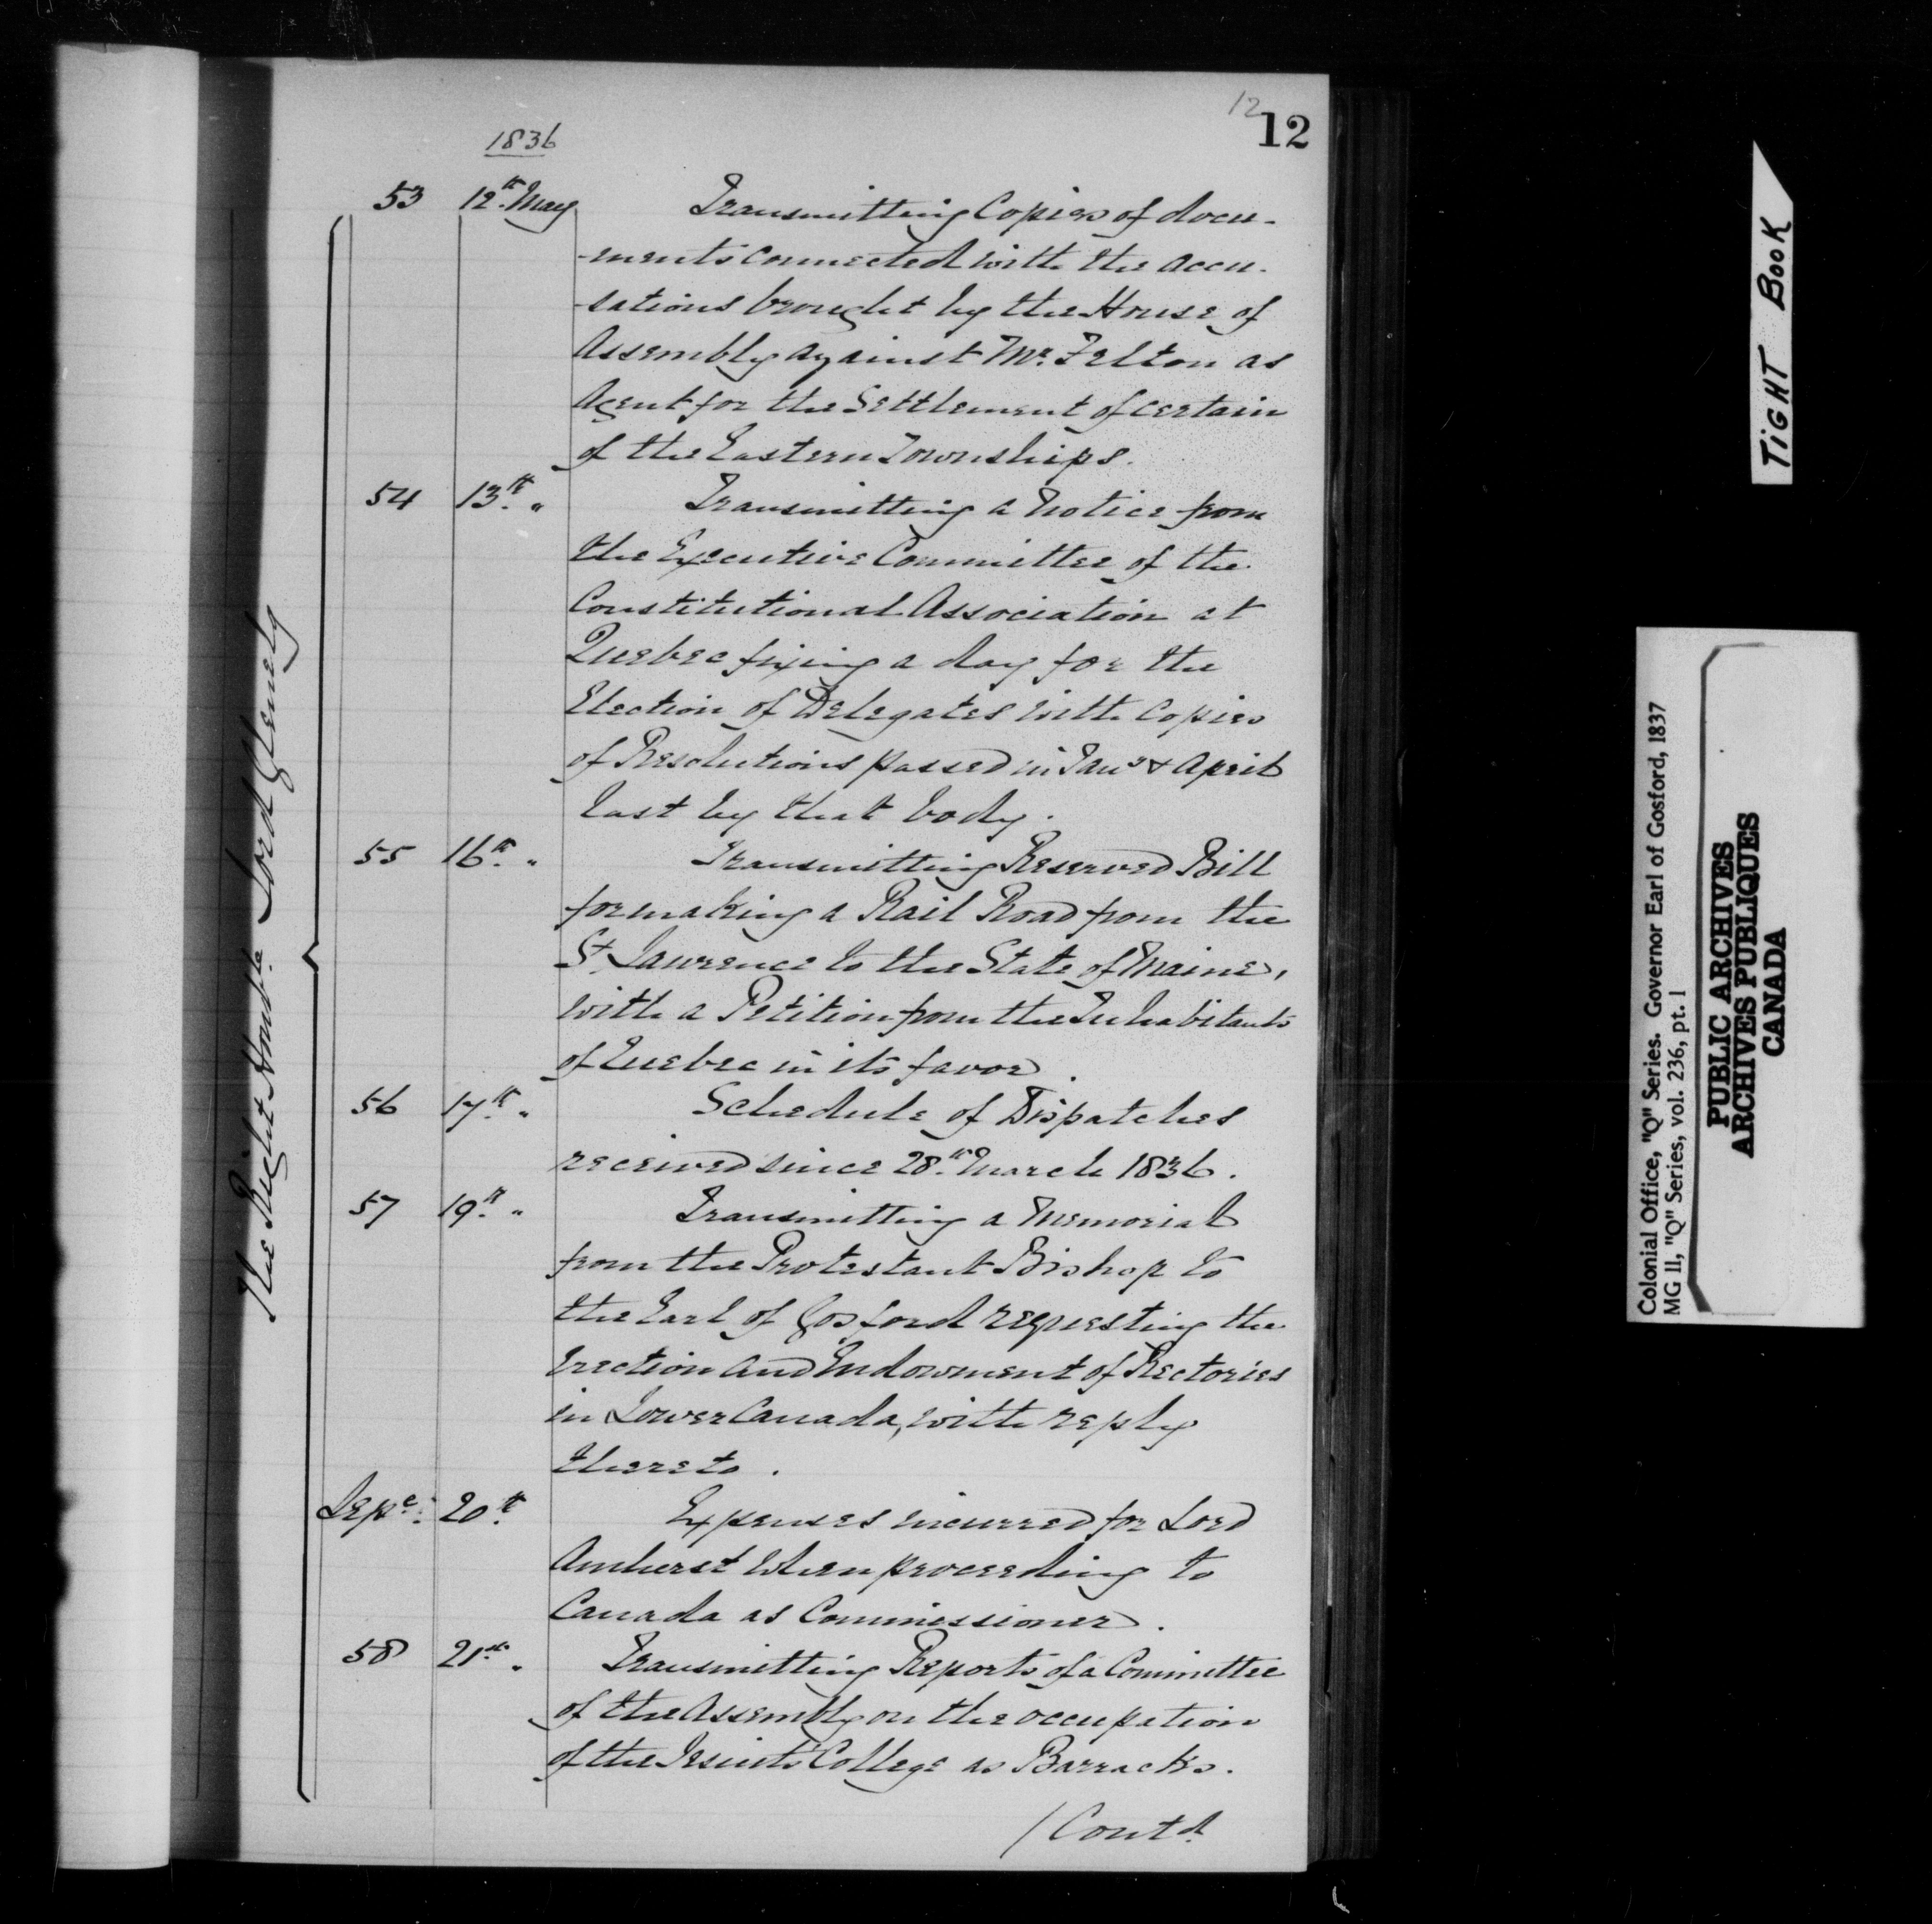 12
12
1836
The Right Honble. Lord Glenelg
53 12th. May Transmitting Copies of docu-
-ments connected with the accu-
-sations brought by the House of
Assembly against Mr. Felton as
Agent for the Settlement of certain
of the Eastern Townships.
54 13th. " Transmitting a notice from
the Executive Committee of the
Constitutional Association at
Quebec fixing a day for the
Election of Delegates with copies
of Resolutions passed in Jany & April
last by that body.
55 16th. " Transmitting Reserved Bill
for making a Rail Road from the
St. Lawrence to the State of Maine,
with a Petition from the Inhabitants
of Quebec in its favor.
56 17th. " Schedule of Dispatches
received since 28th. March 1836.
57 19th. " Transmitting a Memorial
from the Protestant Bishop to
the Earl of Gosford requesting the
Erection and Endowment of Rectories
in Lower Canada, with reply
thereto.
Sepe. 20th. Expenses incurred for Lord
Amherst when proceeding to
Canada as Commissioner.
58 21st. " Transmitting Reports of a Committee
of the Assembly on the occupation
of the Jesuits' College as Barracks.
/Contd.
TIGHT BOOK
Colonial Office, "Q" Series. Governor Earl of Gosford, 1837
MG 11, "Q" Series, vol. 236, pt. 1
PUBLIC ARCHIVES
ARCHIVES PUBLIQUES
CANADA